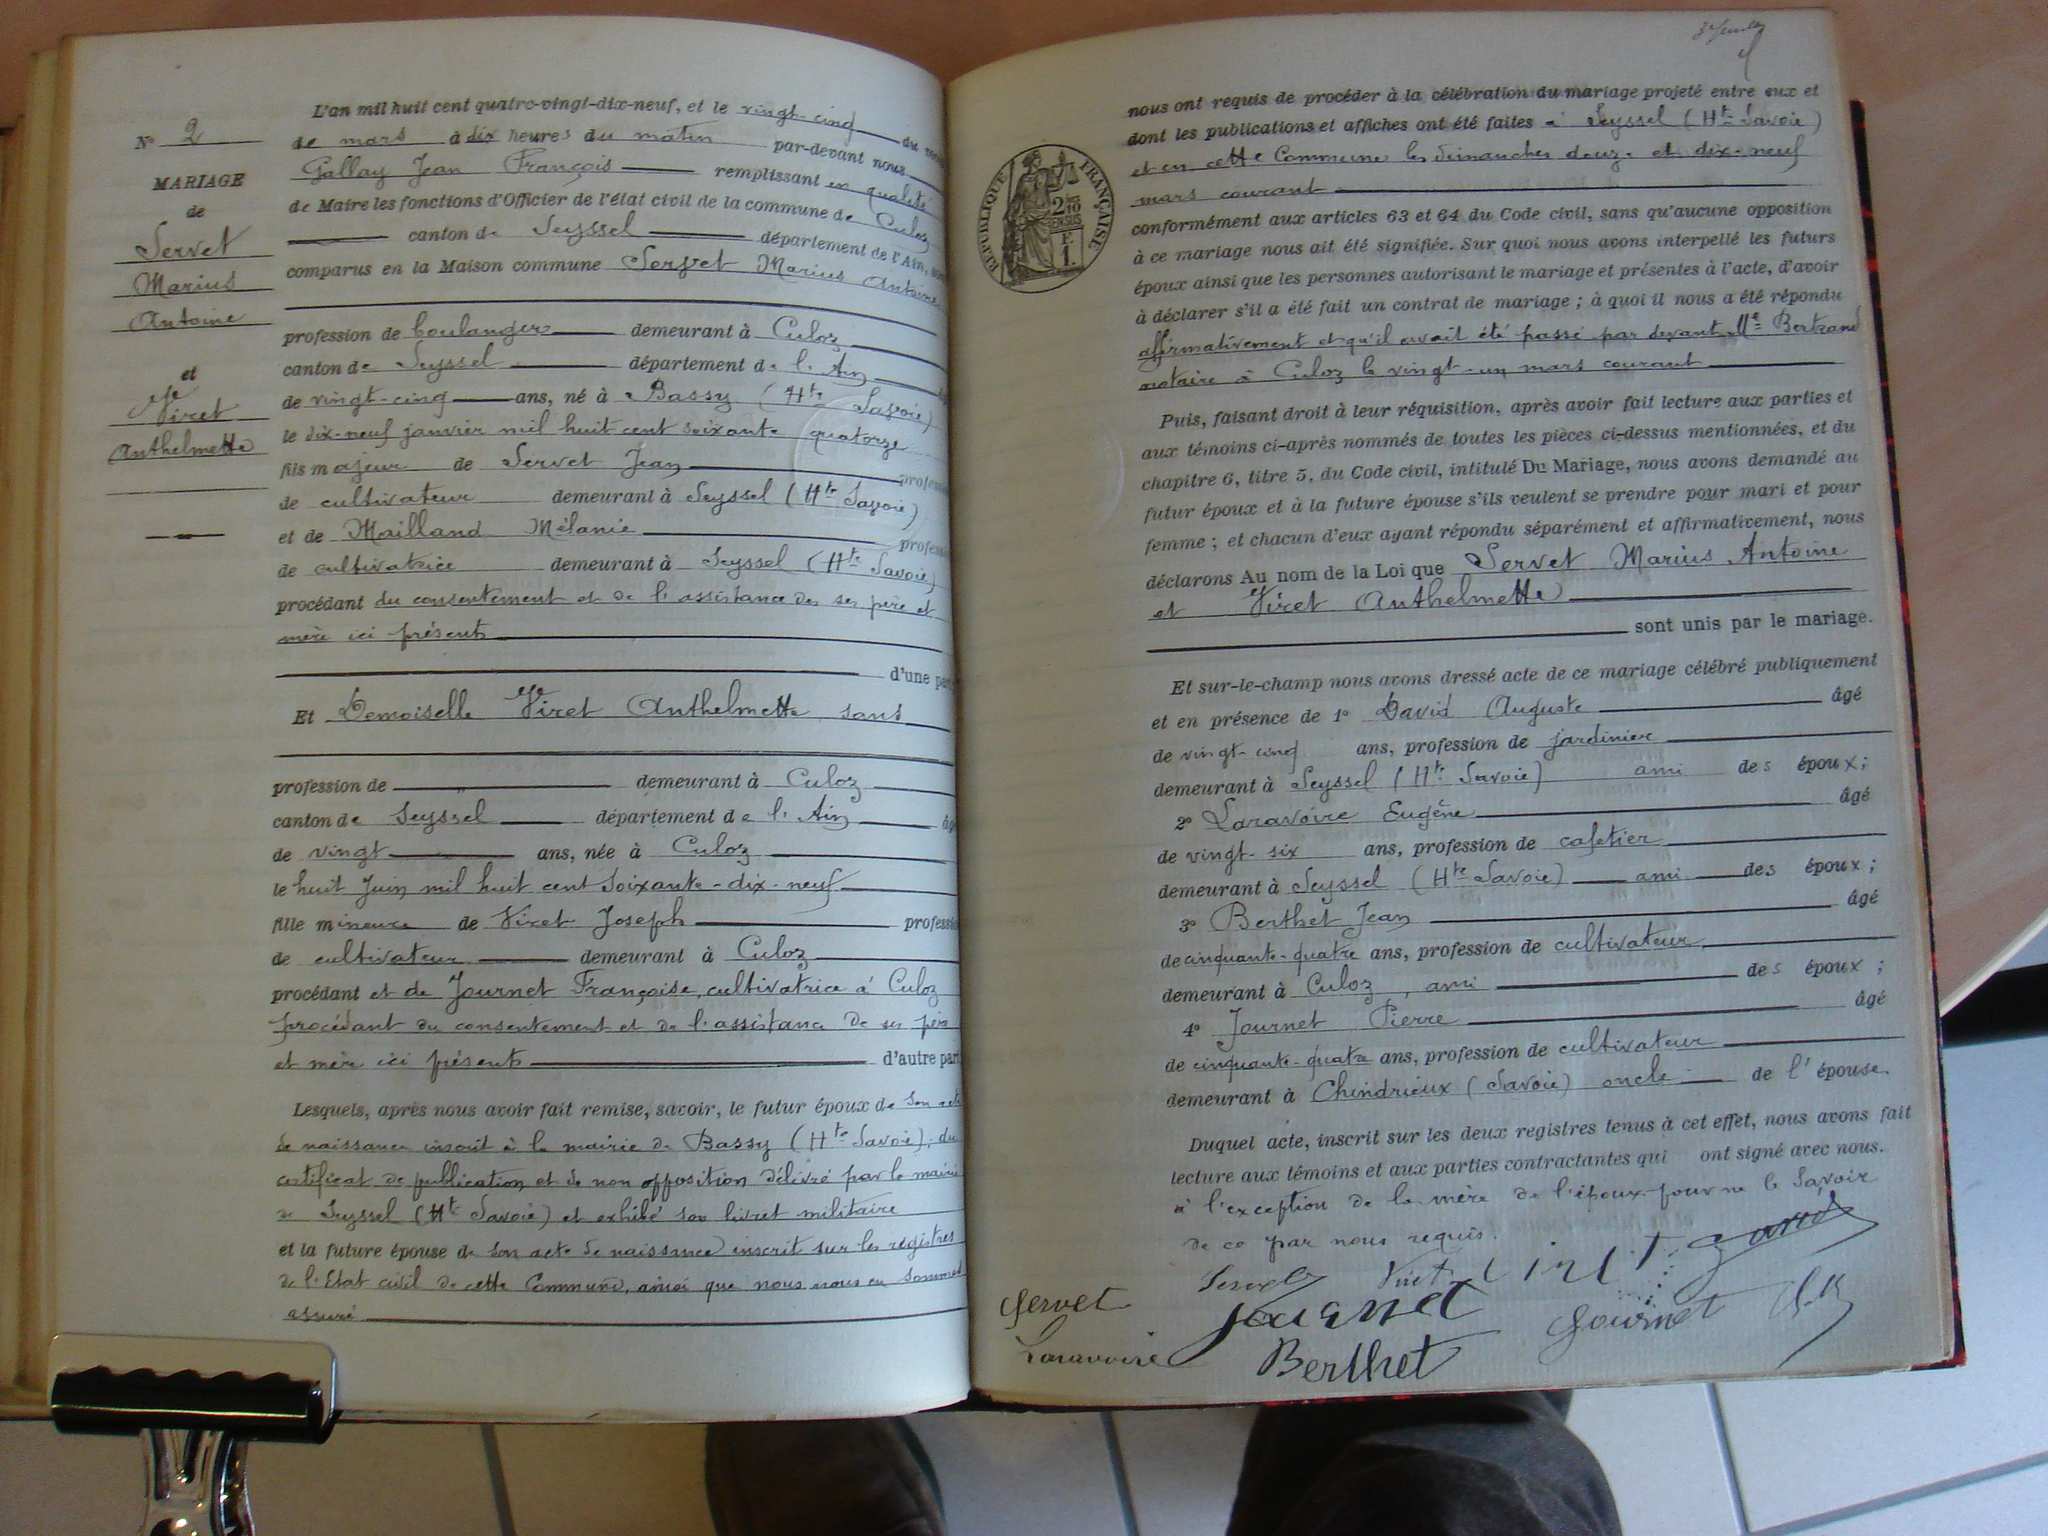 N° 2
MARIAGE
de
Servet
Marius
Antoine
et
Viret
Anthelmette
L'an mil huit cent quatre-vingt-dix-neuf, et le vingt-cinq du
de mars à dix heures du matin par-devant nous
Gallay Jean François remplissant en qualité
de Maire les fonctions d'Officier de l'état civil de la commune de Culoz
canton de Seyssel département de l'Ain,
comparus en la Maison commune Servet Marius Antoine
profession de boulanger demeurant à Culoz
canton de Seyssel département de l'Ain
de vingt-cinq ans, né à Bassy (Hte Savoie)
le dix-neuf janvier mil huit cent soixante quatorze
fils majeur de Servet Jean profess
de cultivateur demeurant à Seyssel (Hte Savoie)
et de Mailland Mélanie profess
de cultivatrice demeurant à Seyssel (Hte Savoie)
procédant du consentement et de l'assistance des ses père et
mère ici présents
d'une part
Et Demoiselle Viret Anthelmette sans
profession de demeurant à Culoz
canton de Seyssel département de l'Ain âg
de vingt ans, née à Culoz
le huit Juin mil huit cent soixante-dix-neuf
fille mineure de Viret Joseph professi
de cultivateur demeurant à Culoz
procédant et de Journet Françoise, cultivatrice à Culoz
procédant du consentement et de l'assistance de ses père
et mère ici présents d'autre part
Lesquels, après nous avoir fait remise, savoir, le futur époux de son acte
de naissance inscrit à la mairie de Bassy (Hte Savoie); du
certificat de publication et de non opposition délivré par le maire
de Seyssel (Hte Savoie) et exhibé son livret militaire
et la future épouse de son acte de naissance inscrit sur les registres
de l'Etat civil de cette Commune, ainsi que nous nous en sommes
assuré
RÉPUBLIQUE FRANÇAISE
nous ont requis de procéder à la célébration du mariage projeté entre eux et
dont les publications et affiches ont été faites à Seyssel (Hte Savoie)
et en cette Commune les dimanches douze et dix-neuf
mars courant
conformément aux articles 63 et 64 du Code civil, sans qu'aucune opposition
à ce mariage nous ait été signifiée. Sur quoi nous avons interpellé les futurs
époux ainsi que les personnes autorisant le mariage et présentes à l'acte, d'avoir
à déclarer s'il a été fait un contrat de mariage ; à quoi il nous a été répondu
affirmativement et qu'il avait été passé par devant Me Bertrand
notaire à Culoz le vingt-un mars courant
Puis, faisant droit à leur réquisition, après avoir fait lecture aux parties et
aux témoins ci-après nommés de toutes les pièces ci-dessus mentionnées, et du
chapitre 6, titre 5, du Code civil, intitulé Du Mariage, nous avons demandé au
futur époux et à la future épouse s'ils veulent se prendre pour mari et pour
femme ; et chacun d'eux ayant répondu séparément et affirmativement, nous
déclarons Au nom de la Loi que Servet Marius Antoine
et Viret Anthelmette
sont unis par le mariage.
Et sur-le-champ nous avons dressé acte de ce mariage célébré publiquement
et en présence de 1° David Auguste âgé
de vingt-cinq ans, profession de jardinier
demeurant à Seyssel (Hte Savoie) ami des époux ;
2° Laravoire Eugène âgé
de vingt-six ans, profession de cafetier
demeurant à Seyssel (Hte Savoie) ami des époux ;
3° Berthet Jean âgé
de cinquante-quatre ans, profession de cultivateur
demeurant à Culoz, ami des époux ;
4° Journet Pierre âgé
de cinquante-quatre ans, profession de cultivateur
demeurant à Chindrieux (Savoie) oncle de l'épouse.
Duquel acte, inscrit sur les deux registres tenus à cet effet, nous avons fait
lecture aux témoins et aux parties contractantes qui ont signé avec nous.
à l'exception de la mère de l'époux pour ne le savoir
de ce par nous requis.
Viret
Servet
Journet
Journet
Laravoire
Berthet